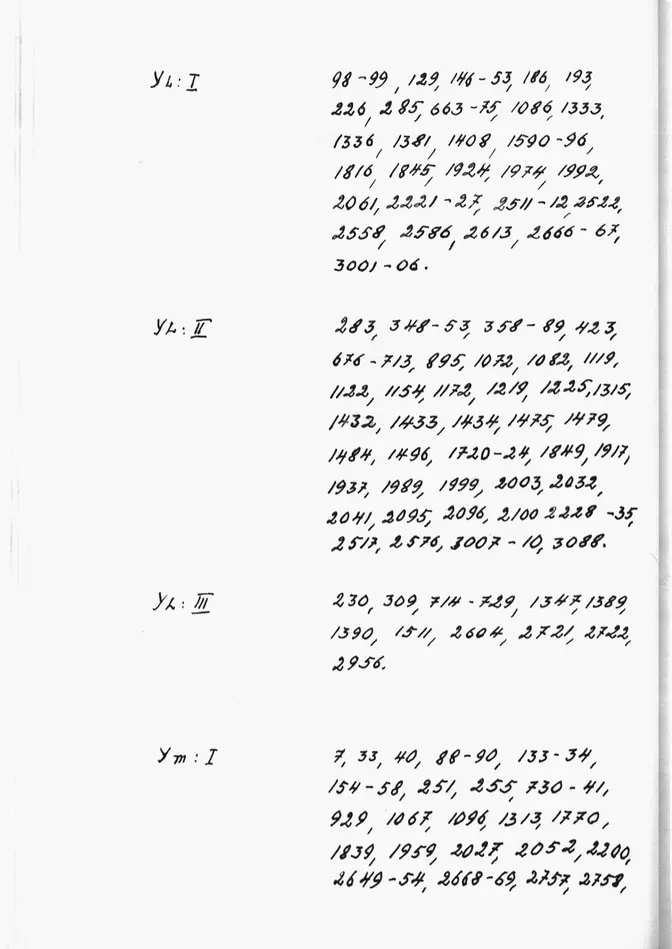 YL: I 98-99, 129, 146-53, 186, 193,
226, 285, 663-75, 1086, 1333,
1336, 1381, 1408, 1590-96,
1816, 1845, 1924, 1974, 1992,
2061, 2221-27, 2511-12, 2522,
2558, 2586, 2613, 2666-67,
3001-06.
YL: II 283, 348-53, 358-89, 423,
676-713, 895, 1072, 1082, 1119,
1122, 1154, 1172, 1219, 1225, 1315,
1432, 1433, 1434, 1475, 1479,
1484, 1496, 1720-24, 1849, 1917,
1937, 1989, 1999, 2003, 2032,
2041, 2095, 2096, 2100 2228-35,
2517, 2576, 3007-10, 3088.
YL: III 230, 309, 714-729, 1347, 1389,
1390, 1511, 2604, 2721, 2722,
2956.
Ym: I 7, 33, 40, 88-90, 133-34,
154-58, 251, 255, 730-41,
929, 1067, 1096, 1313, 1770,
1839, 1959, 2027, 2052, 2200,
2649-54, 2668-69, 2757, 2758,